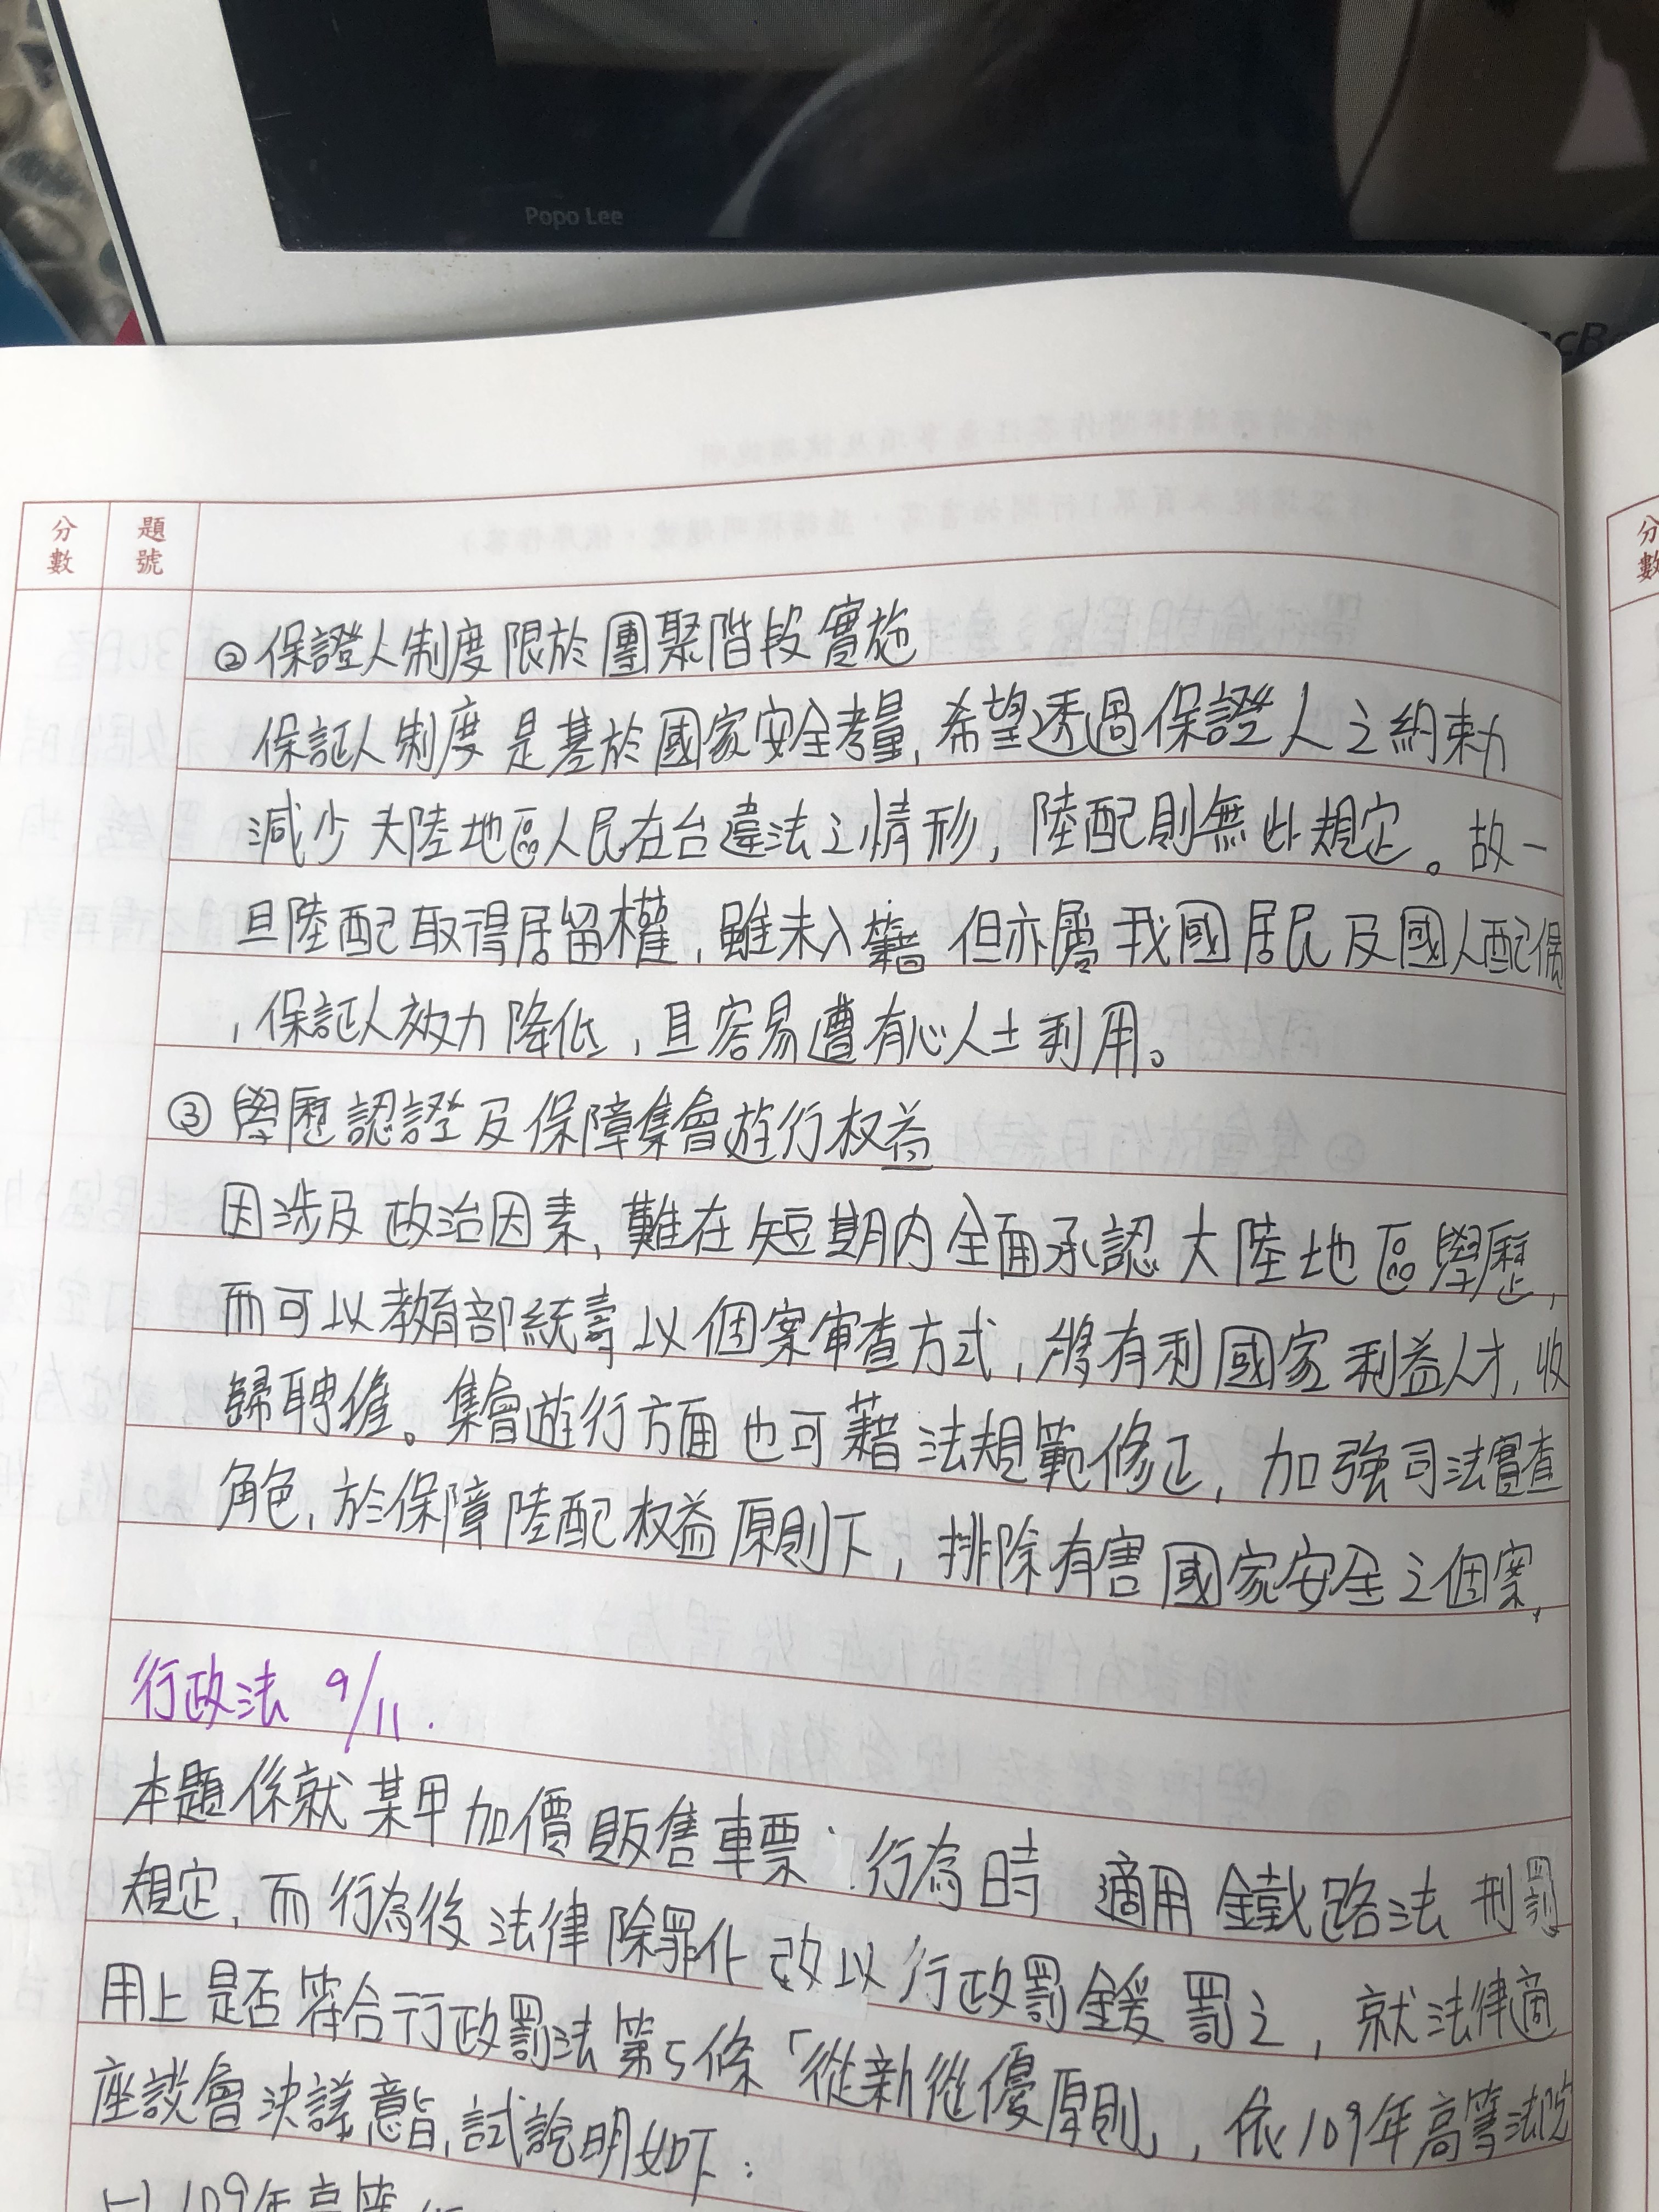 Popo Lee
acB
分數
題號
分數
②保證人制度限於團聚階段實施
保証人制度是基於國家安全考量,希望透過保證人之約束力
減少大陸地區人民在台違法之情形,陸配則無此規定。故一
旦陸配取得居留權,雖未入籍但亦屬我國居民及國人配偶
,保証人效力降低,且容易遭有心人士利用。
③學歷認證及保障集會遊行权益
因涉及政治因素,難在短期內全面承認大陸地區學歷,
而可以教育部統籌以個案審查方式,將有利國家利益人才,收
歸聘進。集會遊行方面也可藉法規範修正,加強司法審查
角色,於保障陸配权益原則下,排除有害國家安全之個案,
行政法 9/11.
本題係就某甲加價販售車票:行為時適用鐵路法刑罰
規定,而行為後法律除罪化改以行政罰鍰罰之,就法律適
用上是否符合行政罰法第5條「從新從優原則」,依109年高等法院
座談會決議意旨,試說明如下:
(一)109年高等